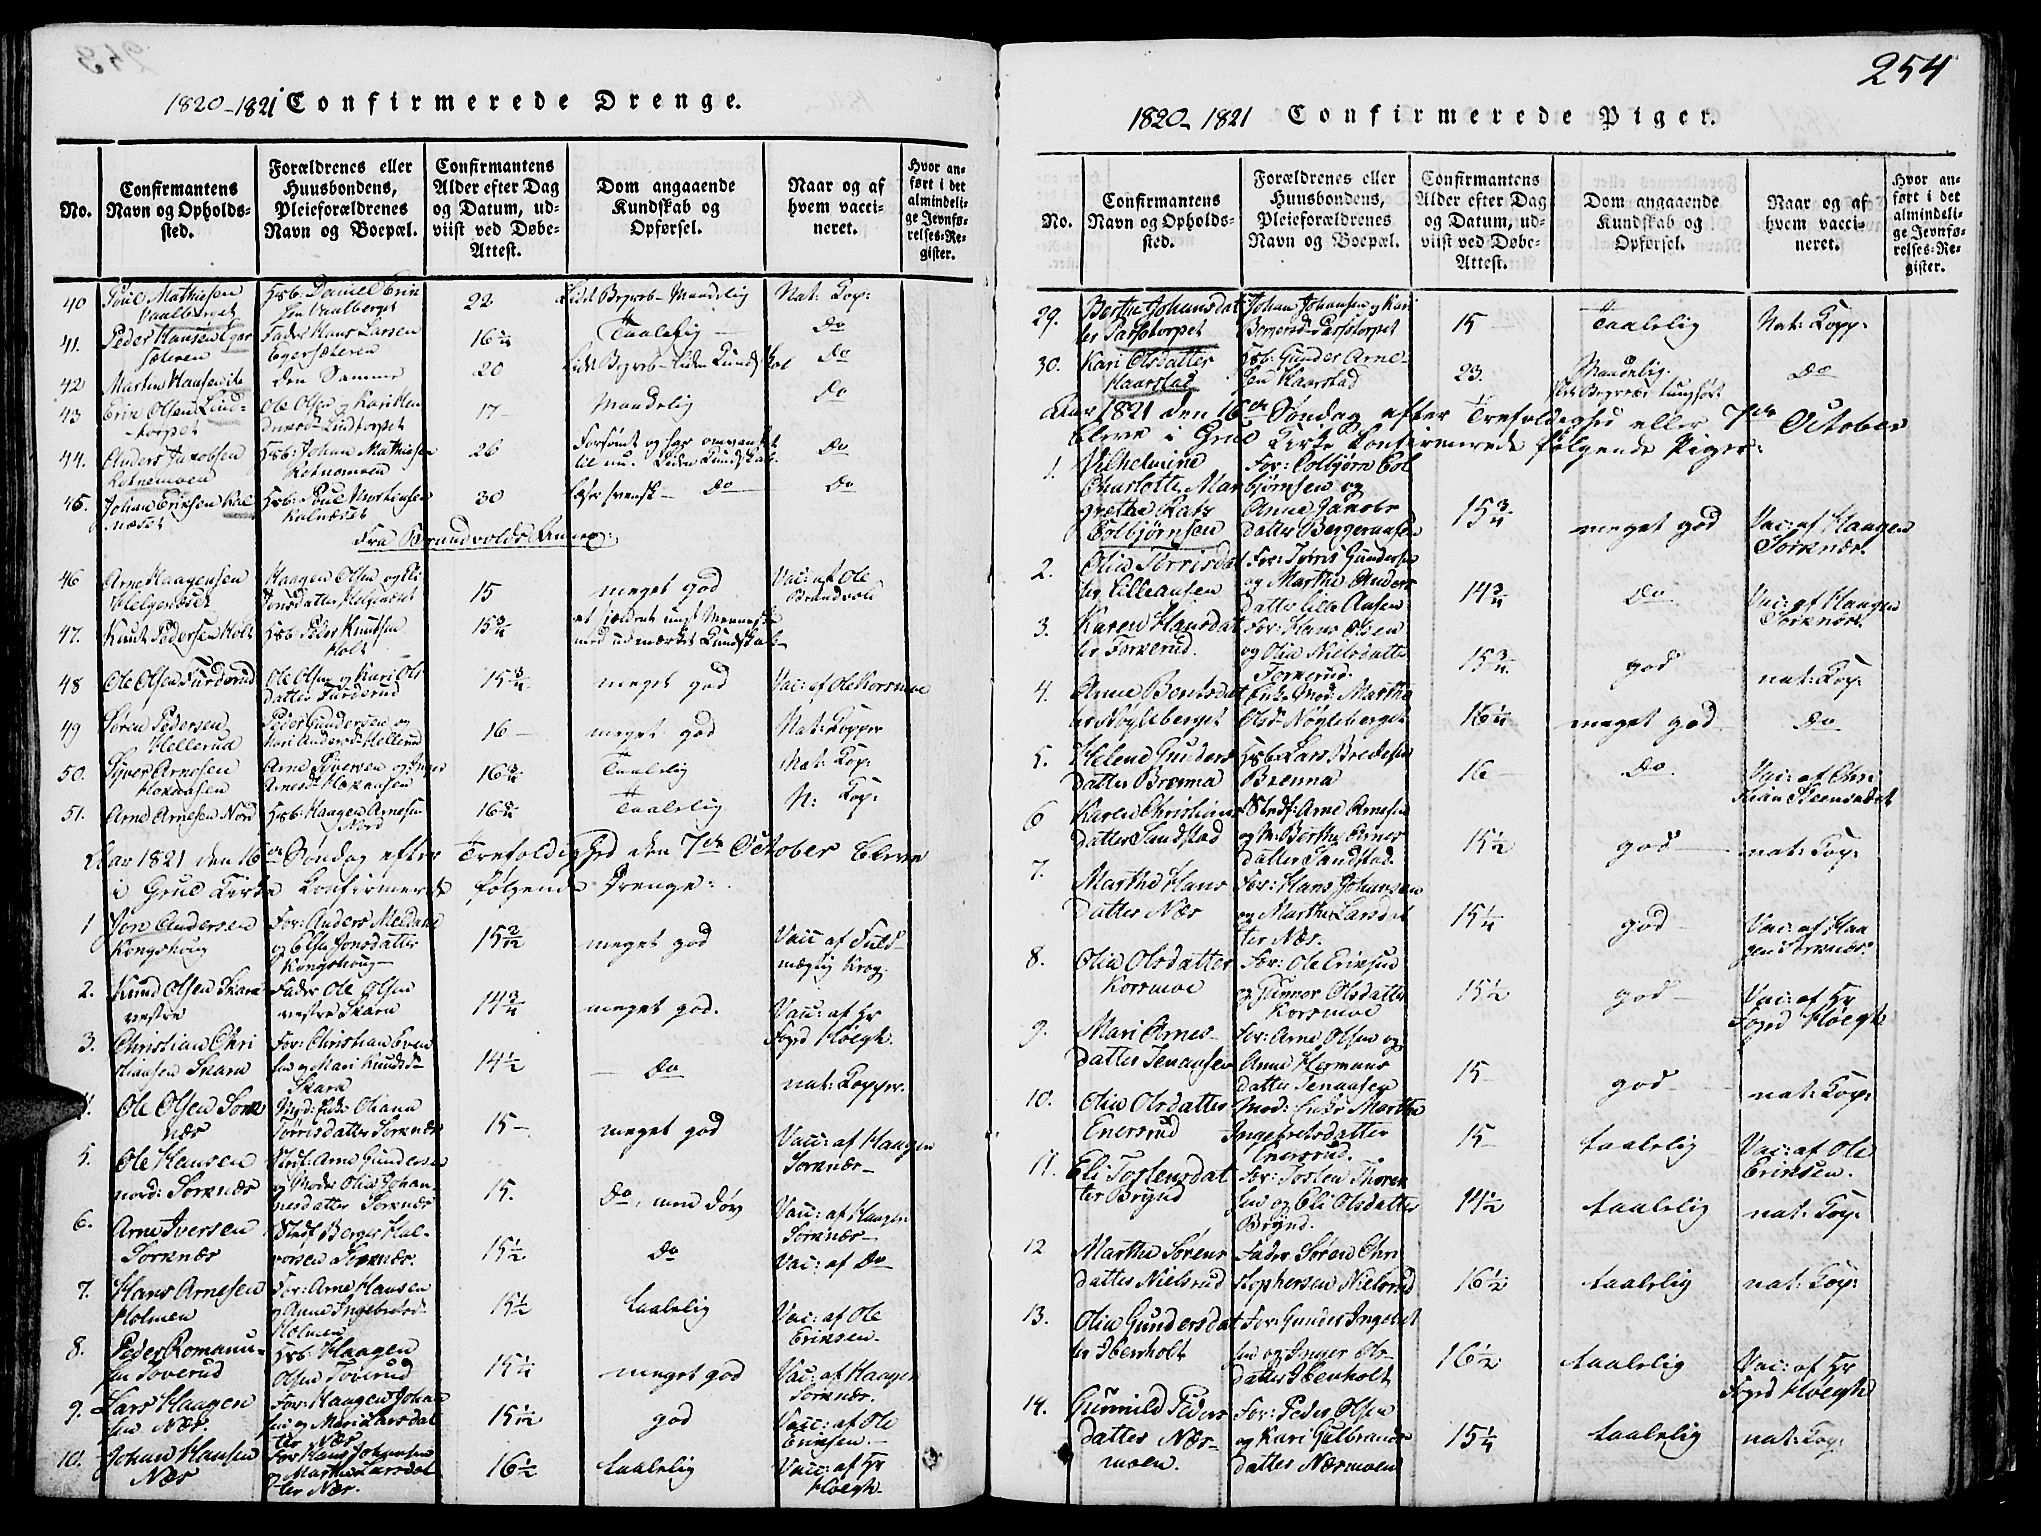 254
1820-1821 Confirmerede Drenge.
No.
Confirmantens Navn og Opholds-sted.
Forældrenes eller Huusbondens, Pleieforældrenes Navn og Boepæl.
Confirmantens Alder efter Dag og Datum, ud-viist ved Døbe-Attest.
Dom angaaende Kundskab og Opførsel.
Naar og af hvem vacci-neret.
Hvor an-ført i det almindeli-ge Jevnfø-relses-Re-gister.
40 Poul Mathiesen
Hsb. Daniel Erik
22
Nat: Kop:
41. Peder Hansen Eger
sæteren
Fader Hans Larsen
Egersæteren
16¼
Taalelig
Do
42 Martin Hansen ib
den Samme
20
Do
43 Erik Olsen Lind-
torpet
17
Maadelig
Do
44. Anders Jacobsen
Hsb: Johan Mathisen
26
Do
45. Johan Eriksen Kal
næset
Hsb: Poul Mortensen
Kalnæset
30
læser svensk - Do
Do
Fra Brandvolds Annex:
46 Arne Haagensen
Helgesæset
Haagen Olsen og Eli
15
meget god
Vac: af Ole
Brandvold
47. Knut Pedersen Holt
Hsb Peder Knudsen
Holt
15¾
et sjeldent ungt Menneske
med udmærket Kundskab
48 Ole Olsen Furderud
Ole Olsen og Kari Ols
datter Furderud
15¾
meget god
Vac: af Ole Korsmoe
49 Søren Pedersen
Hellerud
Peder Gundersen og
Kari Andersd. Hellerud
16
meget god
Nat: Kopper
50. Syver Arnesen
Hokaasen
Arne Syversen og Inger
Arnesd. Hokaasen
16¾
Taalelig
Nat: Kop:
51. Arne Arnesen Nord
Hsb: Haagen Arnesen
Nord
16¾
Taalelig
N: Kop:
Aar 1821 den 16de Søndag efter Trefoldighed den 7de October bleve
i Grue Kirke Confirmerede følgende Drenge:
1 Jon Andersen
Kongshoug
For: Anders
og Else Jonsdatter
Kongshoug
meget god
Vacc af Fuld-
mægtig Krog.
2. Knud Olsen Skara
vestre
Fader Ole Olsen
vestre Skara
14¾
meget god.
Vacc: af Hr
Fogd Høegh.
3. Christian Chri
stiansen Skara
For: Christian Even
sen og Mari Knudsd
Skara
14½
Do
nat: Kopper.
4. Ole Olsen Sork
næs
Mod: Enke Oliana
Tørrisdatter Sorknæs
15
meget god
Vacc: af Haagen
Sorknæs
5. Ole Hansen
nord: Sorknæs
Stedf: Arne Gundersen
og Moder Olia Johan
nesdatter Sorknæs
15.
Do, men døv
Vacc: af Haagen
Sorknæs
6. Arne Iversen
Sorknæs
Stedf Berger Hal-
vorsen Sorknæs.
15½
Do
Vac: af Do
7. Hans Arnesen
Holmen
For: Arne Hansen
og Anne Ingebretsd
Holmen
15½
taalelig
Vac: af Ole
Eriksen.
8. Peder Romanu-
sen Toverud
Hsb: Haagen
Olsen Toverud
15¼
meget god
Vac: af Haagen
Sorknæs.
9. Lars Haagen
sen Næs.
For: Haagen Johan
sen og Mari Larsdat
ter Næs
god
Vacc: af Ole
Eriksen.
10. Johan Hansen
Næs
For Hans Johansen
og Marthe Larsdat
ter Næs.
16½
taalelig
Vacc: af Hr
Høegh
1820-1821 Confirmerede Piger.
No.
Confirmantens Navn og Opholds-sted.
Forældrenes eller Huusbondens, Pleieforældrenes Navn og Boepæl.
Confirmantens Alder efter Dag og Datum, ud-viist ved Døbe-Attest.
Dom angaaende Kundskab og Opførsel.
Naar og af hvem vacci-neret.
Hvor an-ført i det almindeli-ge Jevnfø-relses-Re-gister.
29. Berthe Johansdat
ter Parstorpet
Johan Johansen og Kari
Bergersd. Parstorpet
15
Taalelig
Nat: Kopp:
30. Kari Olsdatter
Kaarstad
Hsb: Gunder Arne-
sen Kaarstad
23.
Maadelig.
Do
Aar 1821 den 16de Søndag efter Trefoldighed eller 7de October
bleve i Grue Kirke Confirmerede følgende Piger:
1. Vilhelmine
Charlotte Mar
grethe Kaas
Colbjørnsen
For: Colbjørn Col
bjørnsen og
Anne Jakobs
datter Bergeraasen
15¾
meget god
Vac: af Haagen
Sorknæs.
2. Olia Tørrisdat
ter Lilleaasen
For: Tørris Gundersen
og Marthe Anders
datter Lille Aasen
14¾
Do
Vac: af Haagen
Sorknæs.
3. Karen Hansdat
ter Torkerud.
For: Hans Olsen
og Olia Nielsdatter
Torkerud.
15¾
god
nat: Kop:
4. Anne Berntsdat
ter Nøgleberget
Enke Mod: Marthe
Olsd. Nøgleberget
16¼
meget god
Do
5. Helene Gunders
datter Brenna
Hsb: Lars Bredesen
Brenna
16
Do.
Vac: af Chri
stian
6 Karen Christians
datter Sandstad
Stedf: Arne Arnesen
og M: Berthe Arnes
datter Sandstad.
15½
god
nat: Kop:
7. Marthe Hans
datter Næs
For: Hans Johansen
og Marthe Larsdat
ter Næs.
15¼
god
Vac: af Haa
gen Sorknæs.
8. Olia Olsdatter
Korsmoe
For: Ole Eriksen
og Gunnor Olsdatter
Korsmoe
15½
god
Vac: af Hr
Fogd Høegh
9. Mari Arnes-
datter Tenaasen
For: Arne Olsen og
Anne Hermans
datter Tenaasen
15
god
nat: Kop:
10. Olia Olsdatter
Enersrud
Mod: Enke Marthe
Ingebretsdatter
Enersrud.
15
taalelig
Vac: af Ole
Eriksen.
11. Eli Tostensdat
ter Brynd
For: Tosten Thoren
sen og Eli Olsdatter
Brynd.
14½
taalelig
nat: Kop:
12 Marthe Sørens
datter Nielsrud
Fader Søren Chri
stophersen Nielsrud
16½
taalelig
nat: Kop:
13. Olia Gundersdat
ter Ibenholt
For: Gunder Ingebret
sen og Inger Ols-
datter Ibenholt
16½
taalelig
Vac: af Hr
Fogd Høegh
14. Gunnild Peders
datter Næs-
moen.
For: Peder Olsen
og Kari Gulbrands
datter Næsmoen
15¼
taalelig
nat: Kop: